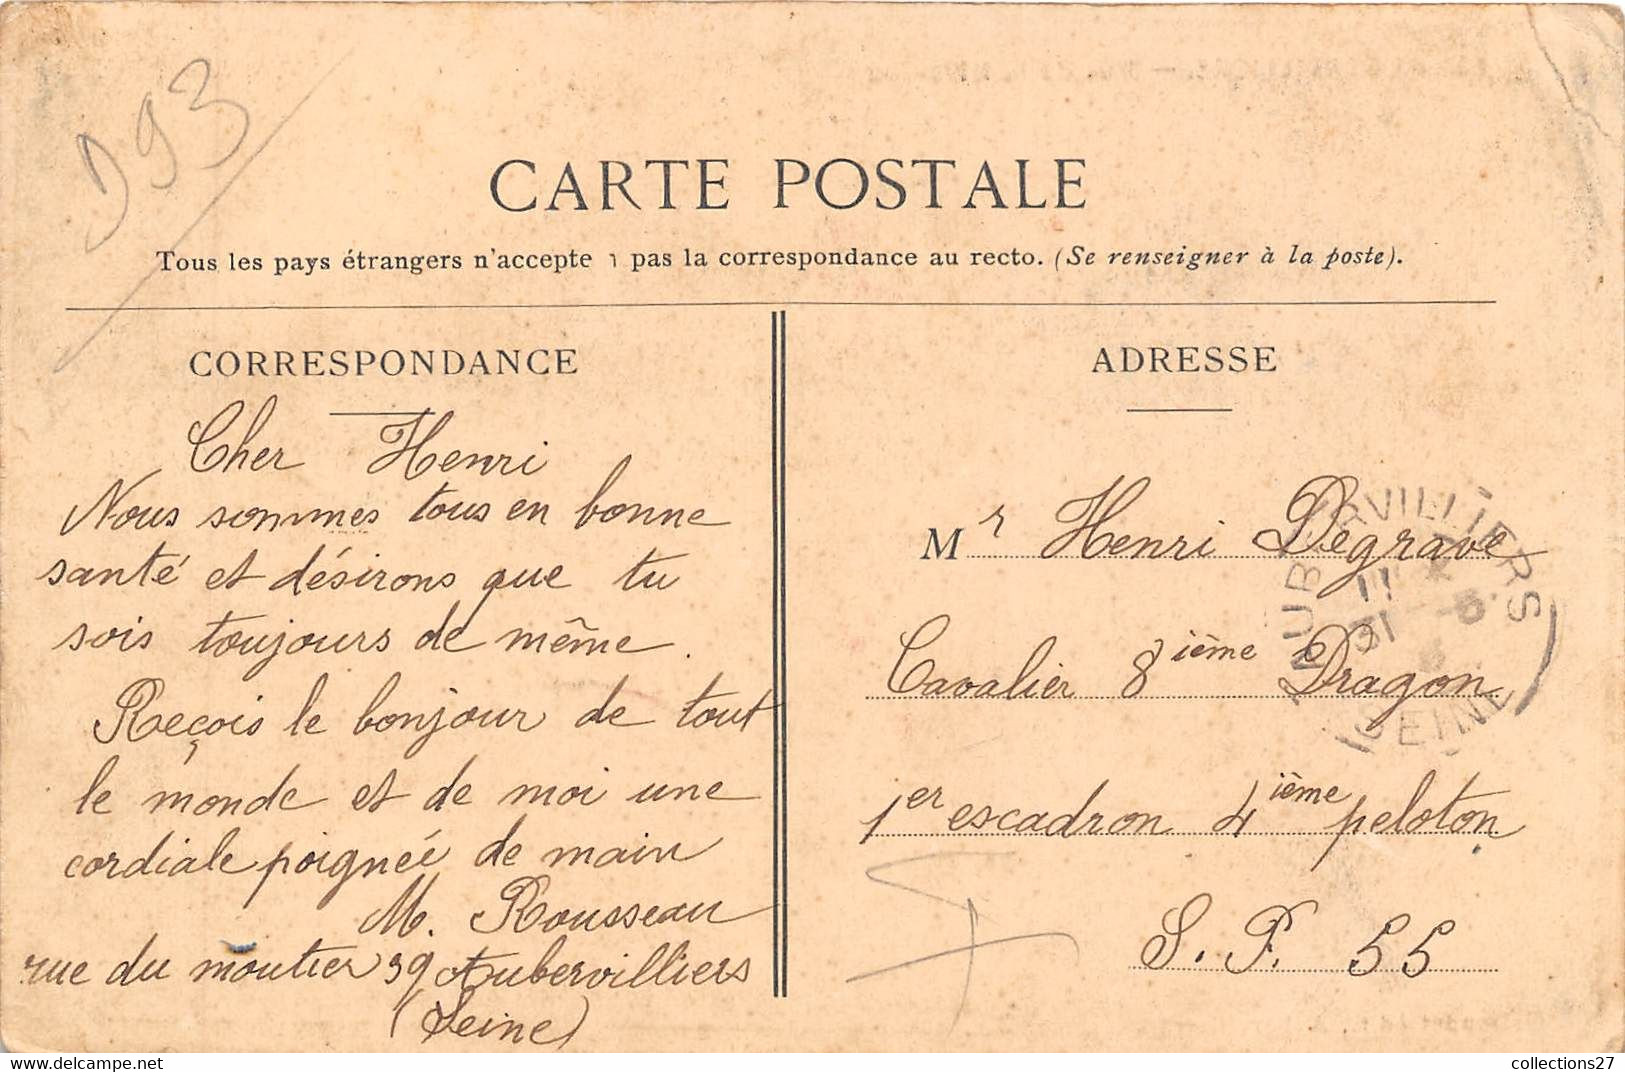 D93
CARTE POSTALE
Tous les pays étrangers n'accepte ı pas la correspondance au recto. (Se renseigner à la poste).
CORRESPONDANCE
Cher Henri
Nous sommes tous en bonne
santé et désirons que tu
sois toujours de même.
Reçois le bonjour de tout
le monde et de moi une
cordiale poignée de main
M. Rousseau
rue du moutier 39 Aubervilliers
(Seine)
ADRESSE
Mr Henri Degrave
Cavalier 8ième Dragon
1er escadron 4ième peloton
S. P. 55
AUBERVILLIERS
11
31 -8
SEINE
collections27